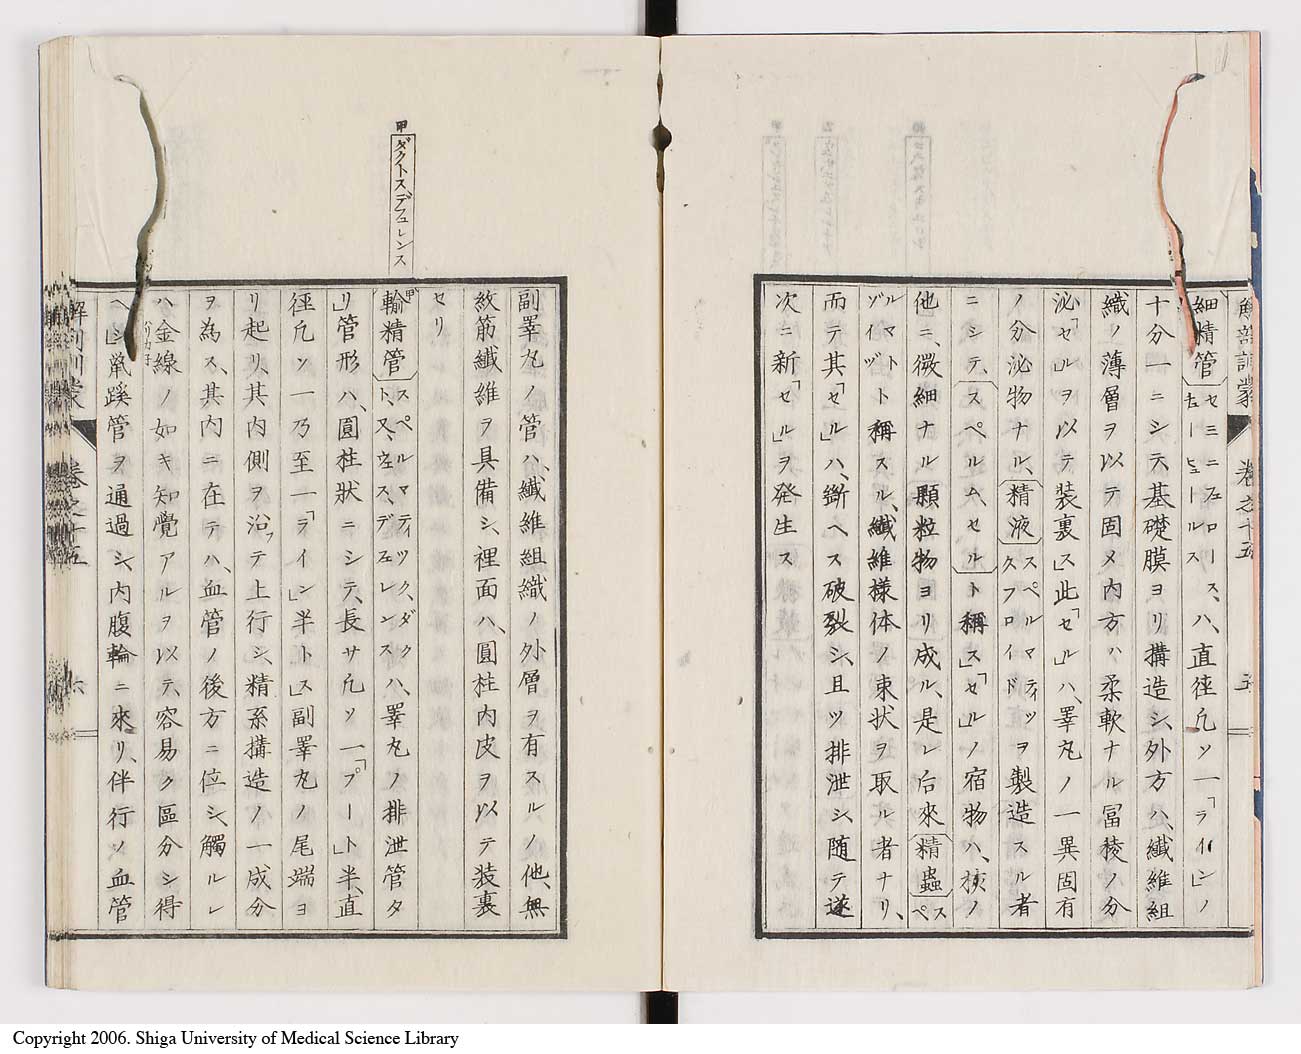 解剖訓蒙 卷之十五 五
細精管セミニフロース、ハ、直徑凢ソ一「ライン」ノ
十分一ニシテ、基礎膜ヨリ搆造シ、外方ハ、纖維組
織ノ薄層ヲ以テ固メ内方ハ柔軟ナル冨稜ノ分
泌「セル」ヲ以テ装裏ス」此「セ」ル」ハ、睪丸ノ一異固有
ノ分泌物ナル、精液スペルマティックフロイドヲ製造スル者
ニシテ、スペルム、セルト稱ス」「セ」ル」ノ宿物ハ、核ノ
他ニ、微細ナル顆粒物ヨリ成ル、是レ后來精蟲スペ
ルマトゾイヅト稱スル、纖維様体ノ束狀ヲ取ル者ナリ、
而テ其「セ」ル」ハ、漸ヘス破裂シ、且ツ排泄シ、随テ遂
次ニ新「セ」ル」ヲ発生ス
甲 ダクトス、デフェレンス
副睪丸ノ管ハ、纖維組織ノ外層ヲ有スルノ他、無
紋筋纖維ヲ具備シ、裡面ハ、圓柱内皮ヲ以テ装裏
セリ
甲輸精管スペルマティック、ダクト、又、ウェス、デフェレンスハ、睪丸ノ排泄管タ
リ」管形ハ、圓柱狀ニシテ、長サ凢ソ一「プート」半、直
徑凢ソ一乃至一「ライン」半トス」副睪丸ノ尾端ヨ
リ起リ、其内側ヲ沿フテ上行シ、精系搆造ノ一成分
ヲ為ス、其内ニ在テハ、血管ノ後方ニ位シ、觸ルレ
ハ金線ノ如キ知覺アルヲ以テ、容易ク區分シ得
ヘシ」鼠蹊管ヲ通過シ、内腹輪ニ來リ、伴行ソ血管
解剖訓蒙 卷之十五 六
Copyright 2006. Shiga University of Medical Science Library